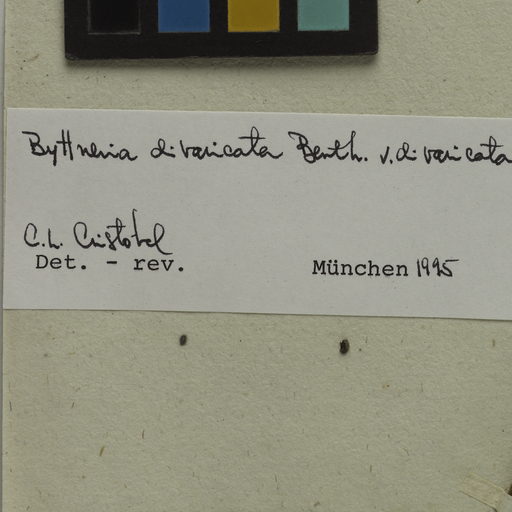 Byttneria divaricata Benth. v. divaricata
C.L. Cristóbal
Det. - rev. München 1995